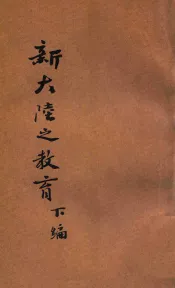 新大陸之教育下編